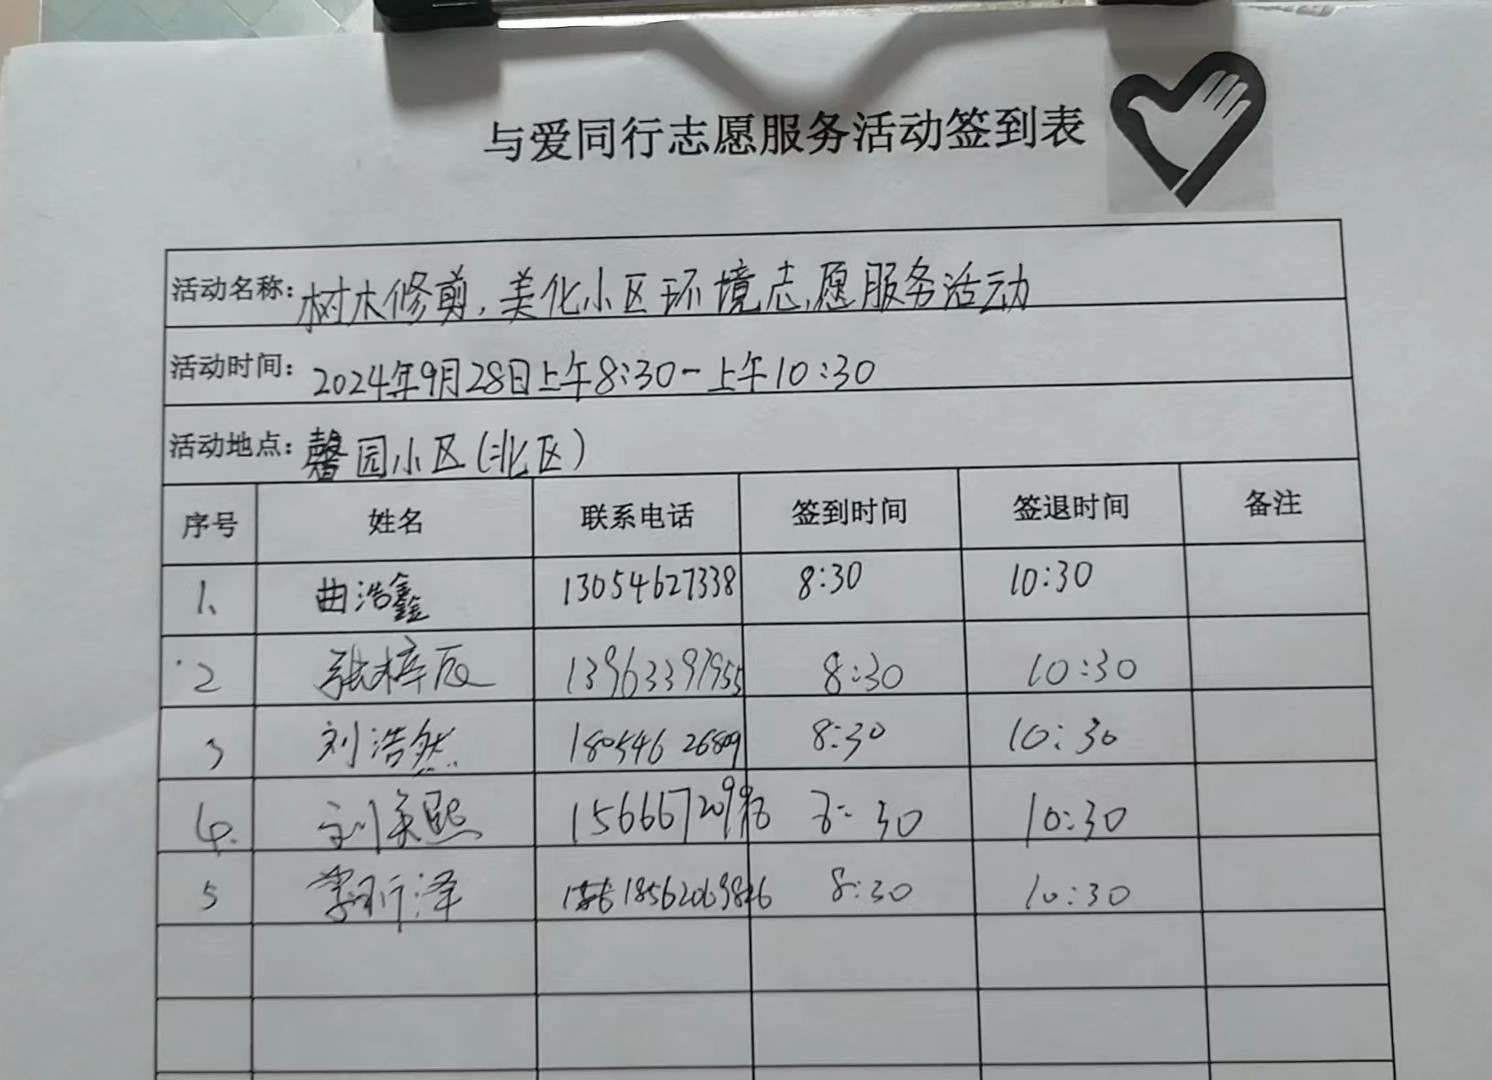 与爱同行志愿服务活动签到表
活动名称: 树木修剪,美化小区环境志愿服务活动
活动时间: 2024年9月28日上午8:30-上午10:30
活动地点: 馨园小区(北区)
序号 姓名 联系电话 签到时间 签退时间 备注
1、 曲浩鑫 13054627338 8:30 10:30
2 张梓辰 13963397955 8:30 10:30
3 刘浩然 18054626809 8:30 10:30
4. 8:30 10:30
5 18562069826 8:30 10:30